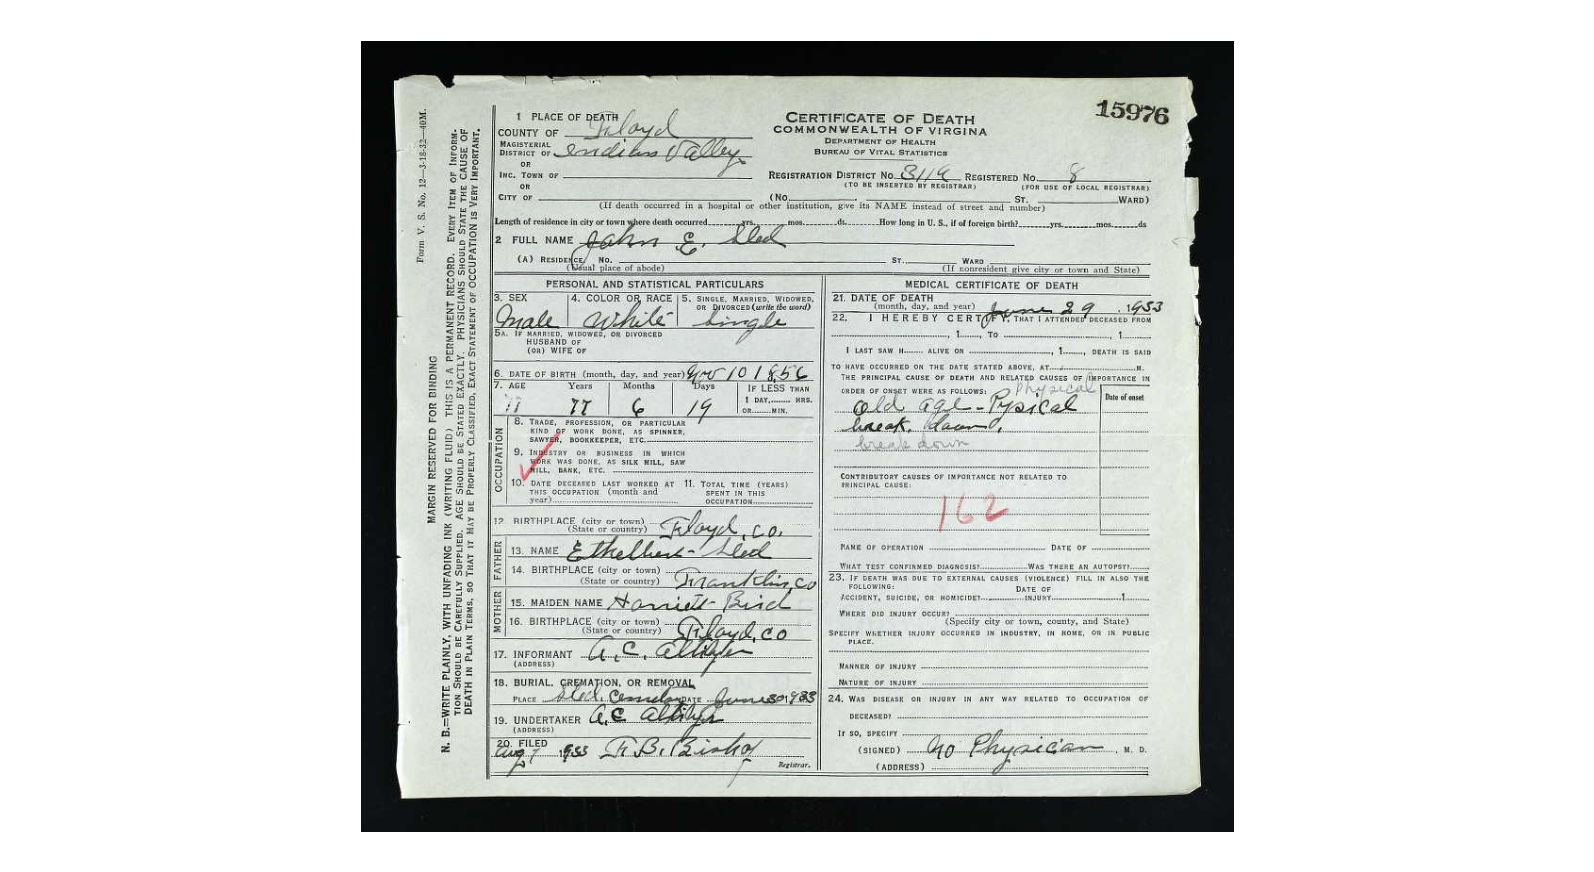 15976
Form V. S. No. 12—3-18-32—40M.
MARGIN RESERVED FOR BINDING
N. B.—WRITE PLAINLY, WITH UNFADING INK (WRITING FLUID) THIS IS A PERMANENT RECORD. EVERY ITEM OF INFORM-
TION SHOULD BE CAREFULLY SUPPLIED. AGE SHOULD BE STATED EXACTLY. PHYSICIANS SHOULD STATE THE CAUSE OF
DEATH IN PLAIN TERMS, SO THAT IT MAY BE PROPERLY CLASSIFIED. EXACT STATEMENT OF OCCUPATION IS VERY IMPORTANT.
1 PLACE OF DEATH
COUNTY OF Floyd
MAGISTERIAL DISTRICT OF Indian Valley
OR
INC. TOWN OF
OR
CITY OF
CERTIFICATE OF DEATH
COMMONWEALTH OF VIRGINA
DEPARTMENT OF HEALTH
BUREAU OF VITAL STATISTICS
REGISTRATION DISTRICT NO. 311 REGISTERED NO. 8
(TO BE INSERTED BY REGISTRAR) (FOR USE OF LOCAL REGISTRAR)
(NO. ST. WARD)
(If death occurred in a hospital or other institution, give its NAME instead of street and number)
Length of residence in city or town where death occurred yrs. mos. ds. How long in U. S., if of foreign birth? yrs. mos. ds
2 FULL NAME John E. Sled
(A) RESIDENCE NO. ST. WARD
(Usual place of abode) (If nonresident give city or town and State)
PERSONAL AND STATISTICAL PARTICULARS
3. SEX 4. COLOR OR RACE 5. SINGLE, MARRIED, WIDOWED,
OR DIVORCED (write the word)
Male White Single
5A. IF MARRIED, WIDOWED, OR DIVORCED
HUSBAND OF
(OR) WIFE OF
6. DATE OF BIRTH (month, day, and year) Nov 10 1856
7. AGE Years Months Days IF LESS THAN
1 DAY, HRS.
77 77 6 19 OR MIN.
OCCUPATION
8. TRADE, PROFESSION, OR PARTICULAR
KIND OF WORK DONE, AS SPINNER,
SAWYER, BOOKKEEPER, ETC.
9. INDUSTRY OR BUSINESS IN WHICH
WORK WAS DONE, AS SILK MILL, SAW
MILL, BANK, ETC.
10. DATE DECEASED LAST WORKED AT
THIS OCCUPATION (month and
year)
11. TOTAL TIME (YEARS)
SPENT IN THIS
OCCUPATION
12. BIRTHPLACE (city or town) Floyd, Co.
(State or country)
FATHER
13. NAME Ethelbert Sled
14. BIRTHPLACE (city or town)
(State or country) Franklin, Co
MOTHER
15. MAIDEN NAME Harriett Bird
16. BIRTHPLACE (city or town)
(State or country) Floyd, Co
17. INFORMANT A. C.
(ADDRESS)
18. BURIAL, CREMATION, OR REMOVAL
PLACE Sled DATE June 30, 1933
19. UNDERTAKER A. C
(ADDRESS)
20. FILED
Aug 7 1933 Bishop
Registrar.
MEDICAL CERTIFICATE OF DEATH
21. DATE OF DEATH
(month, day, and year) June 29, 1933
22. I HEREBY CERTIFY, THAT I ATTENDED DECEASED FROM
, 1 , TO , 1
I LAST SAW H ALIVE ON , 1 , DEATH IS SAID
TO HAVE OCCURRED ON THE DATE STATED ABOVE, AT M.
THE PRINCIPAL CAUSE OF DEATH AND RELATED CAUSES OF IMPORTANCE IN
ORDER OF ONSET WERE AS FOLLOWS: Physical
Date of onset
Old age - Pysical
break down,
break down
CONTRIBUTORY CAUSES OF IMPORTANCE NOT RELATED TO
PRINCIPAL CAUSE:
162
NAME OF OPERATION DATE OF
WHAT TEST CONFIRMED DIAGNOSIS? WAS THERE AN AUTOPSY?
23. IF DEATH WAS DUE TO EXTERNAL CAUSES (VIOLENCE) FILL IN ALSO THE
FOLLOWING:
DATE OF
ACCIDENT, SUICIDE, OR HOMICIDE? INJURY 1
WHERE DID INJURY OCCUR?
(Specify city or town, county, and State)
SPECIFY WHETHER INJURY OCCURRED IN INDUSTRY, IN HOME, OR IN PUBLIC
PLACE.
MANNER OF INJURY
NATURE OF INJURY
24. WAS DISEASE OR INJURY IN ANY WAY RELATED TO OCCUPATION OF
DECEASED?
IF SO, SPECIFY
(SIGNED) No Physican, M. D.
(ADDRESS)